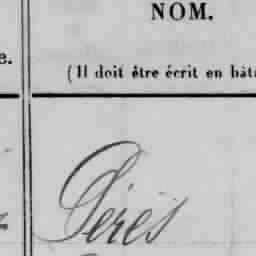 NOM.
e.
(Il doit être écrit en bât
Pérès